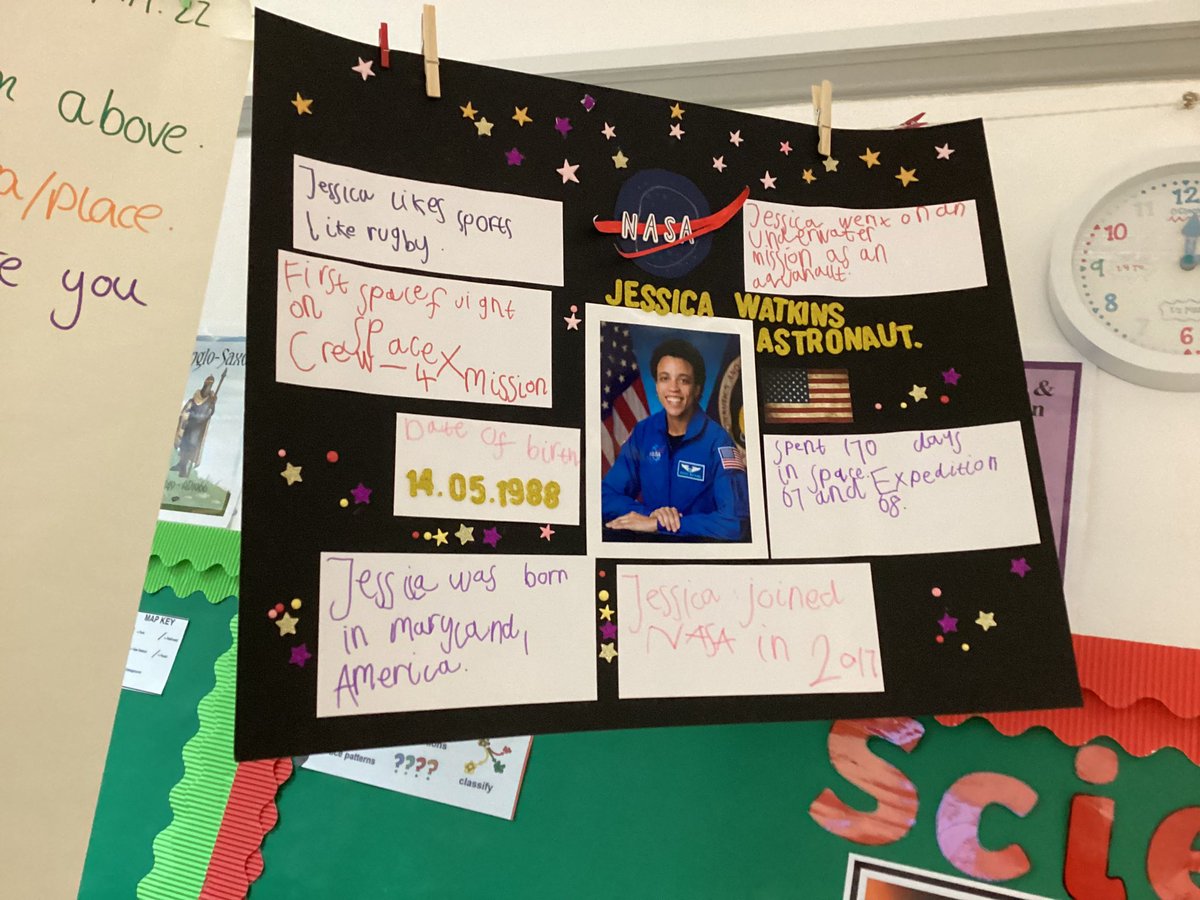 above.
/Place.
you
Jessica likes sports
like rugby.
First spacef
on
Space X
Crew-4 mission
Date of birth
14.05.1988
Jessica was born
in maryland,
America.
NASA
JESSICA WATKINS
ASTRONAUT.
Jessica went on an
underwater
mission as an
Spent 170 days
in space.
67 and Expedition
68.
Jessica joined
NASA in 2017
MAP KEY
patterns
????
classify
12
10
9
8
6
&
Scie